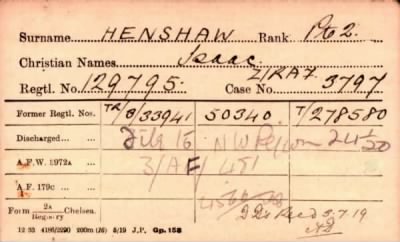 Surname HENSHAW Rank Pte 2.
Christian Names Isaac.
2/RAF.
Regtl. No. 129795. Case No 3797
Former Regtl. Nos. TR/8/33941 50340. T/278580
Discharged
A.F.W. 3972A 3/AF/451
A.F. 179C
Form 2A Registry Chelsea.
3.7.19
12 33 4186/2290 200m (16) 5/19 J.P. Gp.158